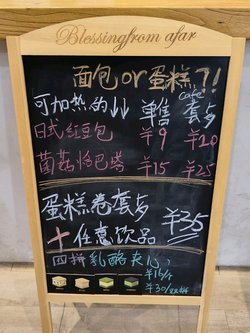 Blessingfrom afar
面包or蛋糕?!
Cafe
可加热的↓↓ 单售 套与
日式红豆包 ¥9 ¥20
菌菇恰巴塔 ¥15 ¥25
蛋糕卷套与
+任意饮品 ¥35
四拼乳酪夹心
¥16/个
¥30/